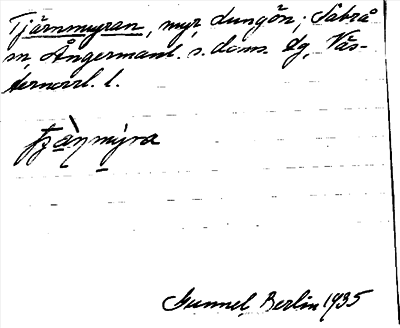 Tjärnmyran, myr, Lungön; Säbrå
sn, Ångermanl. s. doms. dg, Väs-
ternorrl. l.
Gunnel Berlin 1935